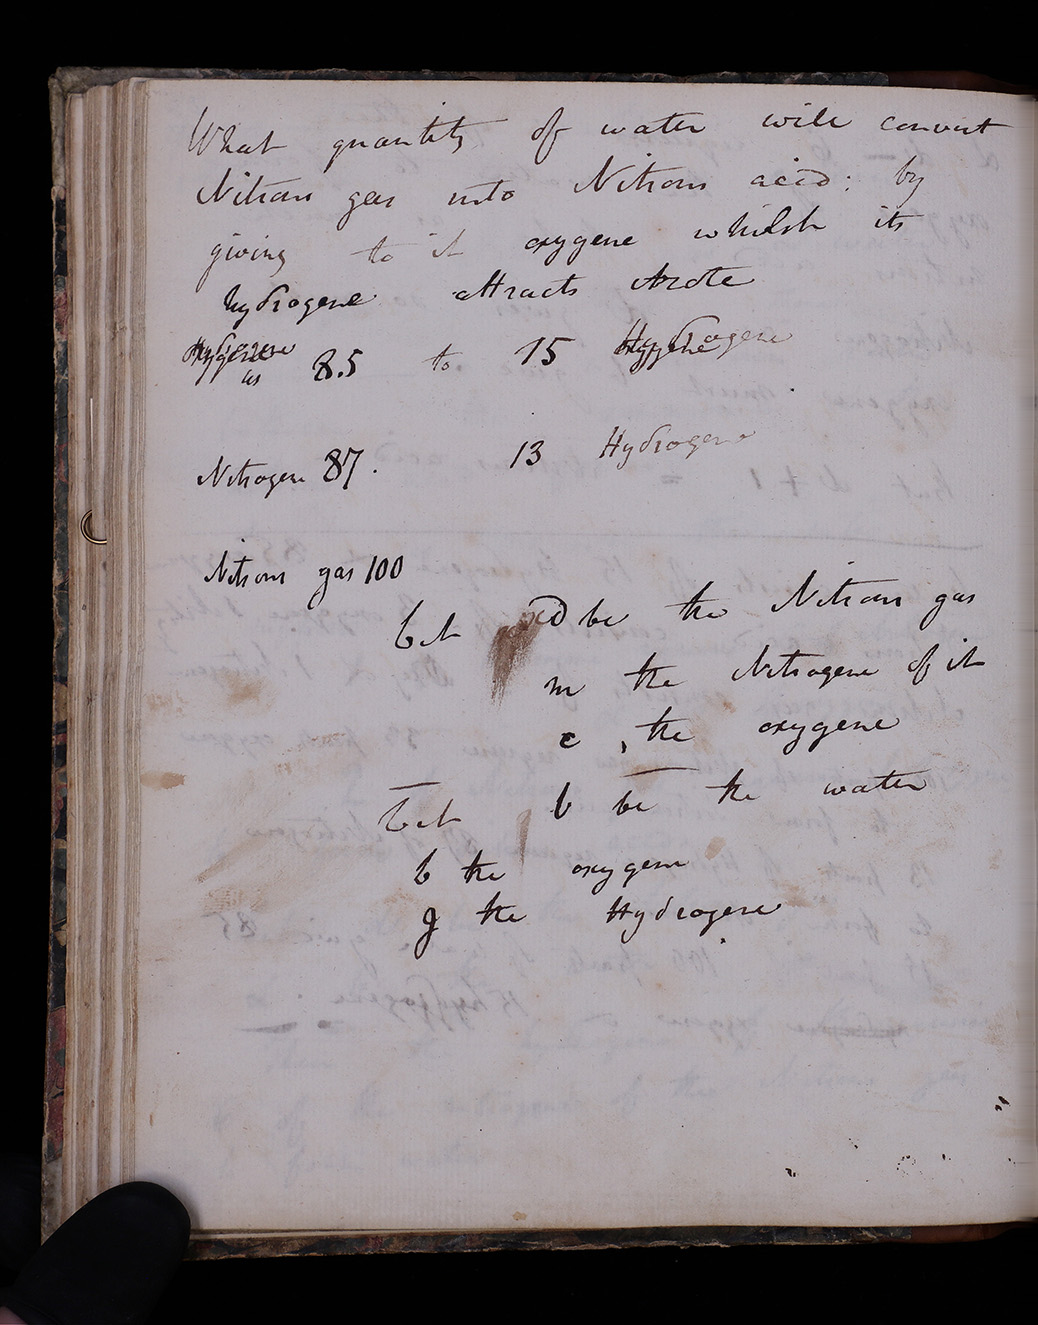 What quantity of water will convert
Nitrous gas into Nitrous acid: by
giving to it oxygene whilst its
hydrogene attracts Azote
as 8.5 to 15 Hydrogene
Nitrogene 87. 13 Hydrogene
Nitrous gas 100
Let a be the Nitrous gas
m the Nitrogene of it
c , the oxygene
Let b be the water
b the oxygene
g the Hydrogene